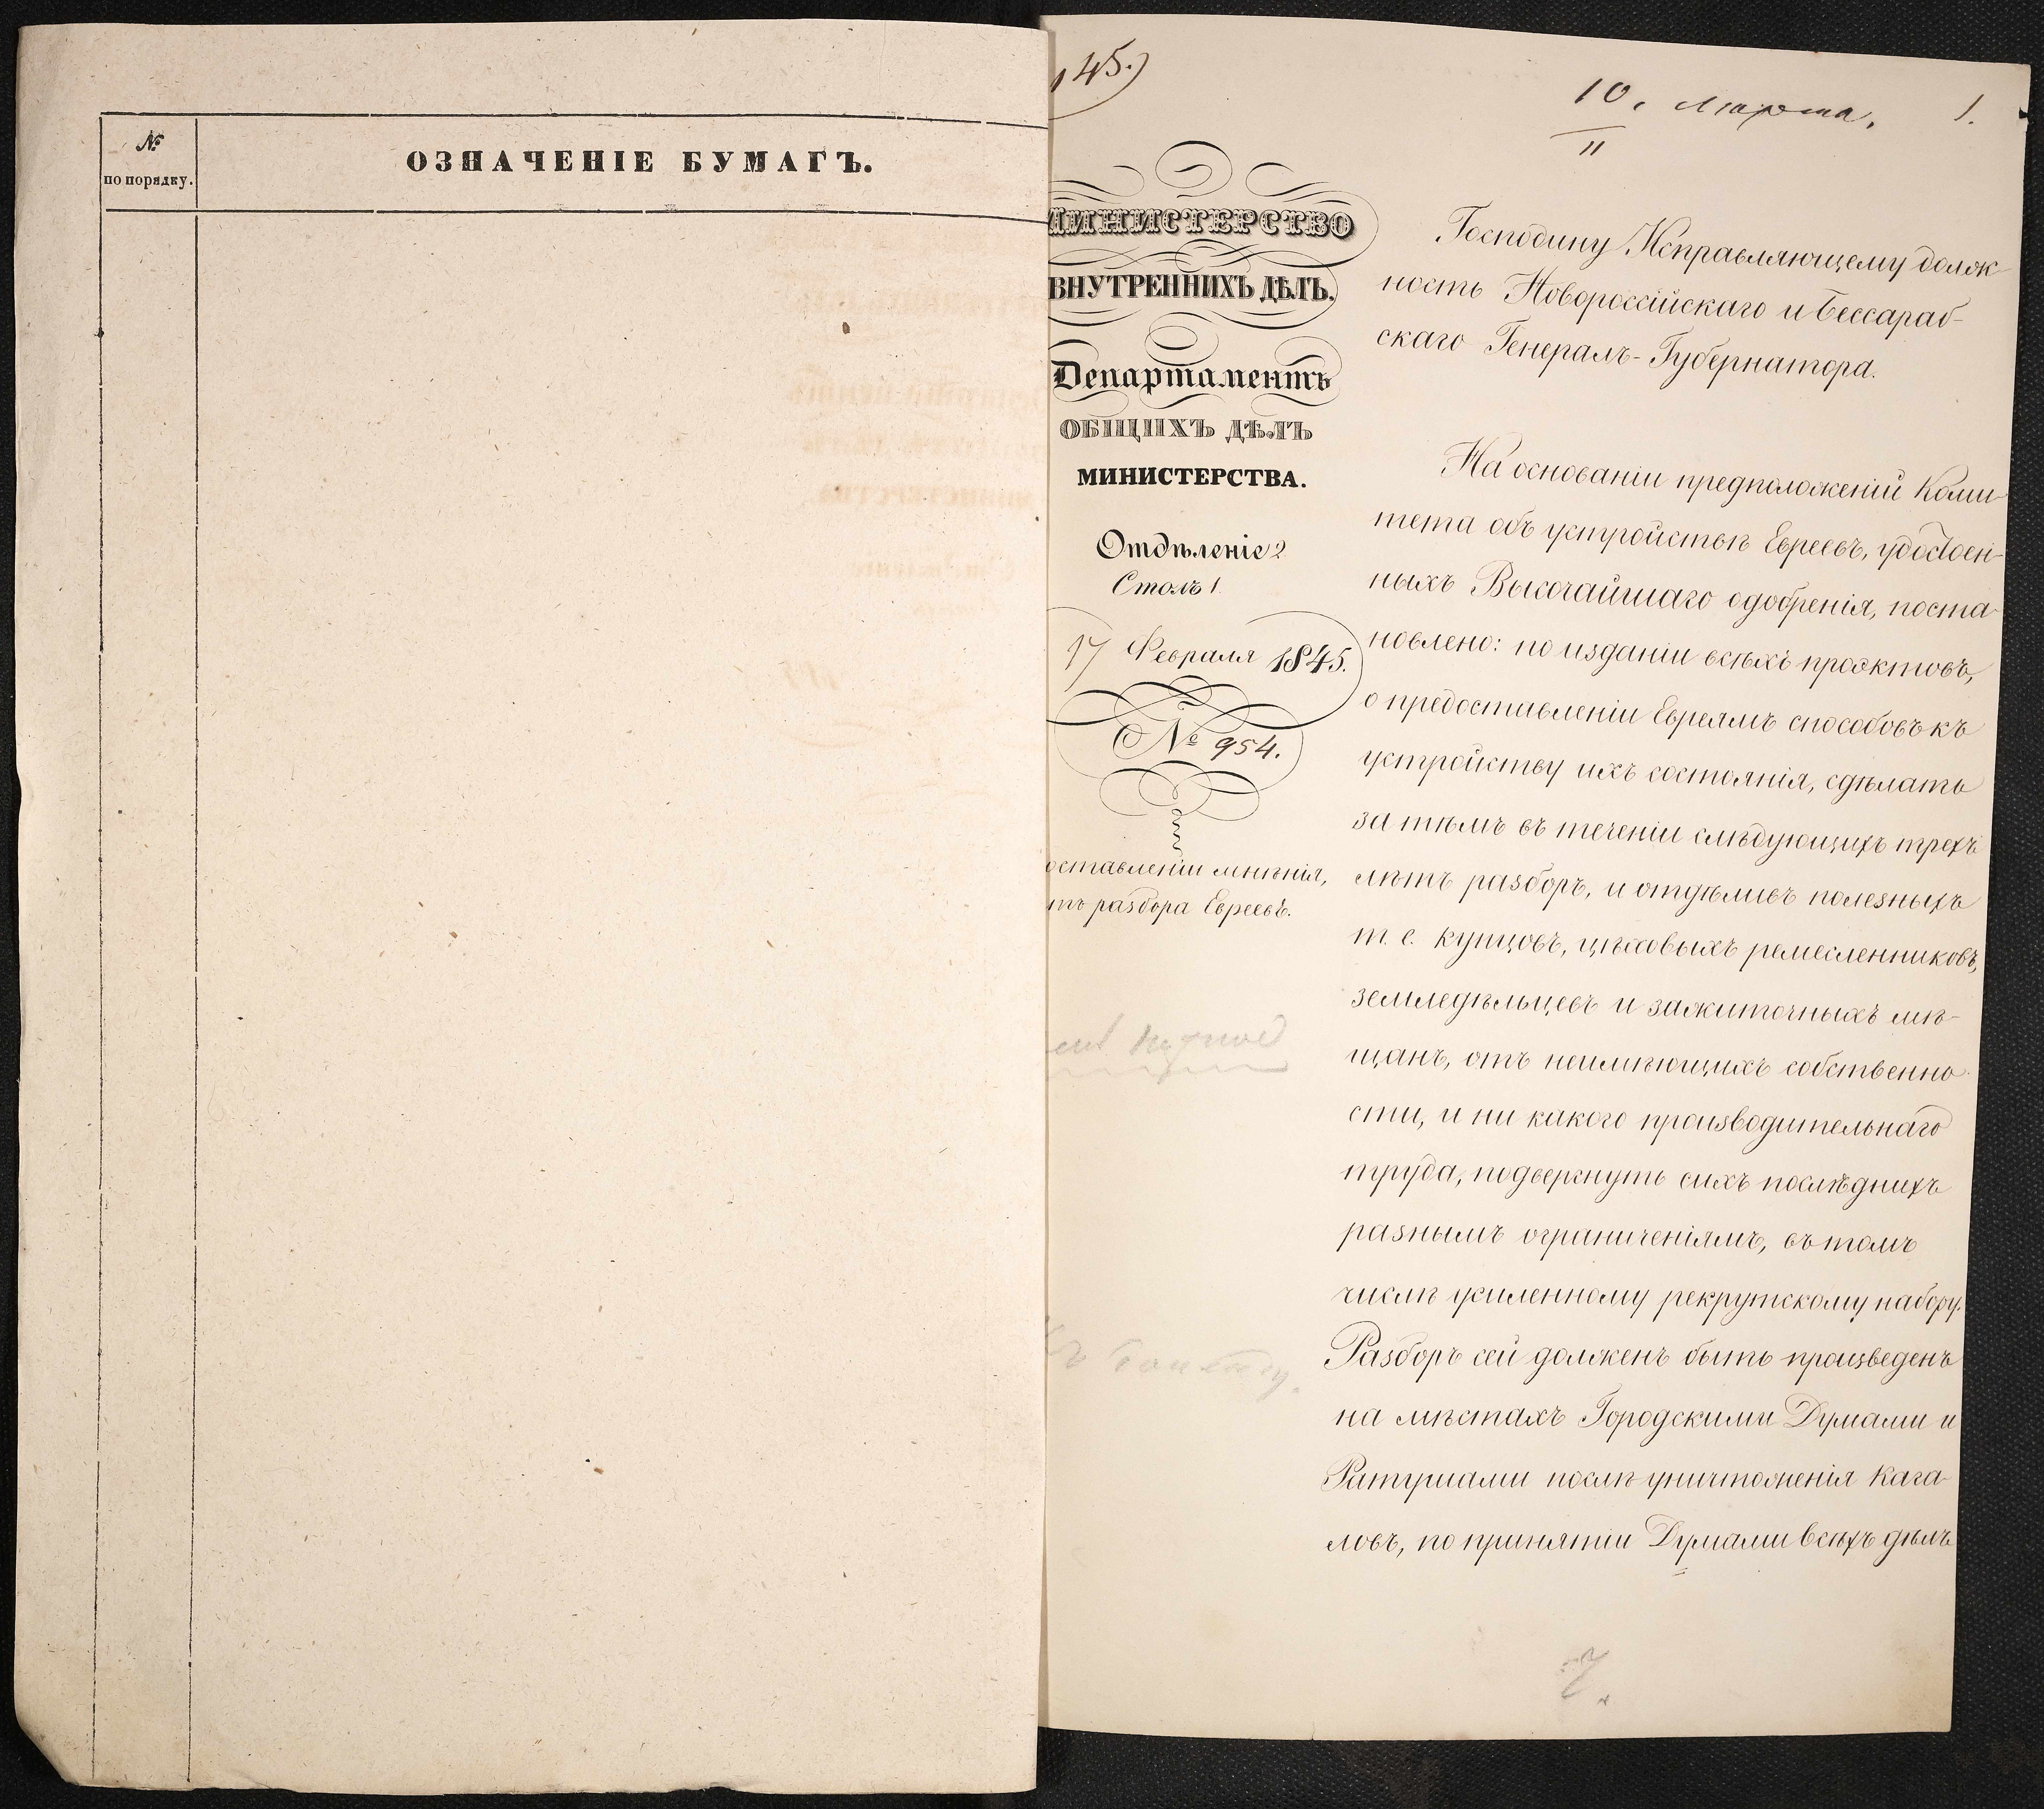 №
по порядку.
ОЗНАЧЕНІЕ БУМАГЪ.
145.)
10. Марта.
11
1.
МИНИСТЕРСТВО
ВНУТРЕННИХЪ ДѢЛЪ.
Департаментъ
ОБЩИХЪ ДѢЛЪ
МИНИСТЕРСТВА.
Отдѣленіе 2
Столъ 1.
17 Февраля 1845.
№ 954.
оставленіи мнѣнія,
разбора Евреевъ.
Господину Исправляющему долж
ность Новороссійскаго и Бессараб-
скаго Генералъ-Губернатора.
На основаніи предположеній Коми-
тета объ устройствѣ Евреевъ, удостоен-
ныхъ Высочайшаго одобренія, поста-
новлено: по изданіи всѣхъ проэктовъ,
о предоставленіи Евреямъ способовъ къ
устройству ихъ состоянія, сдѣлать
за тѣмъ въ теченіи слѣдующихъ трехъ
лѣтъ разборъ, и отдѣливъ полезныхъ
т. е. купцовъ, цѣховыхъ ремесленниковъ,
земледѣльцевъ и зажиточныхъ мѣ-
щанъ, отъ неимѣющихъ собственно
сти, и ни какого производительнаго
труда, подвергнуть сихъ послѣднихъ
разнымъ ограниченіямъ, въ томъ
числѣ усиленному рекрутскому набору.
Разборъ сей долженъ быть произведенъ
на мѣстахъ Городскими Думами и
Ратушами послѣ уничтоженія Кага-
ловъ, по принятіи Думами всѣхъ дѣлъ